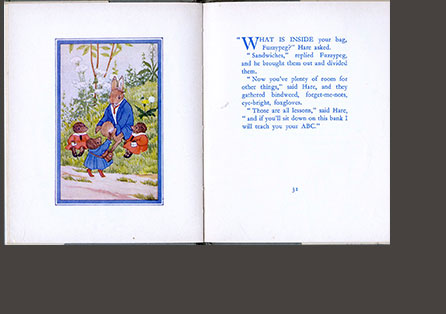 "WHAT IS INSIDE your bag,
Fuzzypeg?" Hare asked.
"Sandwiches," replied Fuzzypeg,
and he brought them out and divided
them.
"Now you've plenty of room for
other things," said Hare, and they
gathered bindweed, forget-me-nots,
eye-bright, foxgloves.
"Those are all lessons," said Hare,
"and if you'll sit down on this bank I
will teach you your ABC."
31